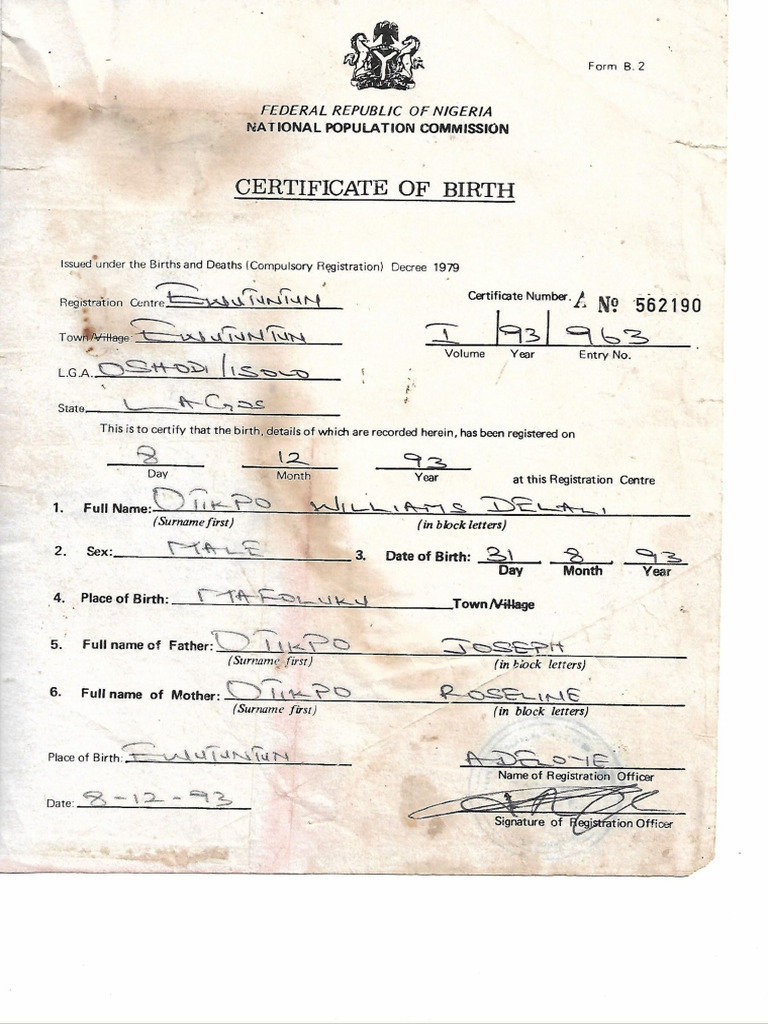 Form B. 2
FEDERAL REPUBLIC OF NIGERIA
NATIONAL POPULATION COMMISSION
CERTIFICATE OF BIRTH
Issued under the Births and Deaths (Compulsory Registration) Decree 1979
Registration Centre EWUTUNTUN
Certificate Number. A No 562190
Town/Village: EWUTUNTUN
I 93 963
Volume Year Entry No.
L.G.A. OSHODI/ISOLO
State LAGOS
This is to certify that the birth, details of which are recorded herein, has been registered on
8 12 93
Day Month Year at this Registration Centre
1. Full Name: OTIKPO WILLIAMS DELALI
(Surname first) (in block letters)
2. Sex: MALE 3. Date of Birth: 31 8 93
Day Month Year
4. Place of Birth: MAFOLUKU Town/Village
5. Full name of Father: OTIKPO JOSEPH
(Surname first) (in block letters)
6. Full name of Mother: OTIKPO ROSELINE
(Surname first) (in block letters)
Place of Birth: EWUTUNTUN ADELOYE
Name of Registration Officer
Date: 8-12-93
Signature of Registration Officer